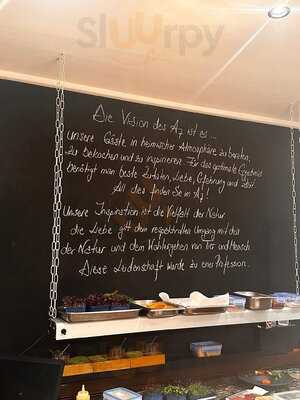 Sluurpy
Die Vision des A7 ist es...
Unsere Gäste in heimischer Atmosphäre zu beraten,
zu bekochen und zu inspirieren. Für das optimale Ergebnis
benötigt man beste Zutaten, Liebe, Erfahrung und Zeit.
All das finden Sie im A7!
Unsere Inspiration ist die Vielfalt der Natur
die Liebe gilt dem respektvollen Umgang mit
der Natur und dem Wohlergehen von Tier und Mensch
Diese Leidenschaft wurde zu einer Profession.